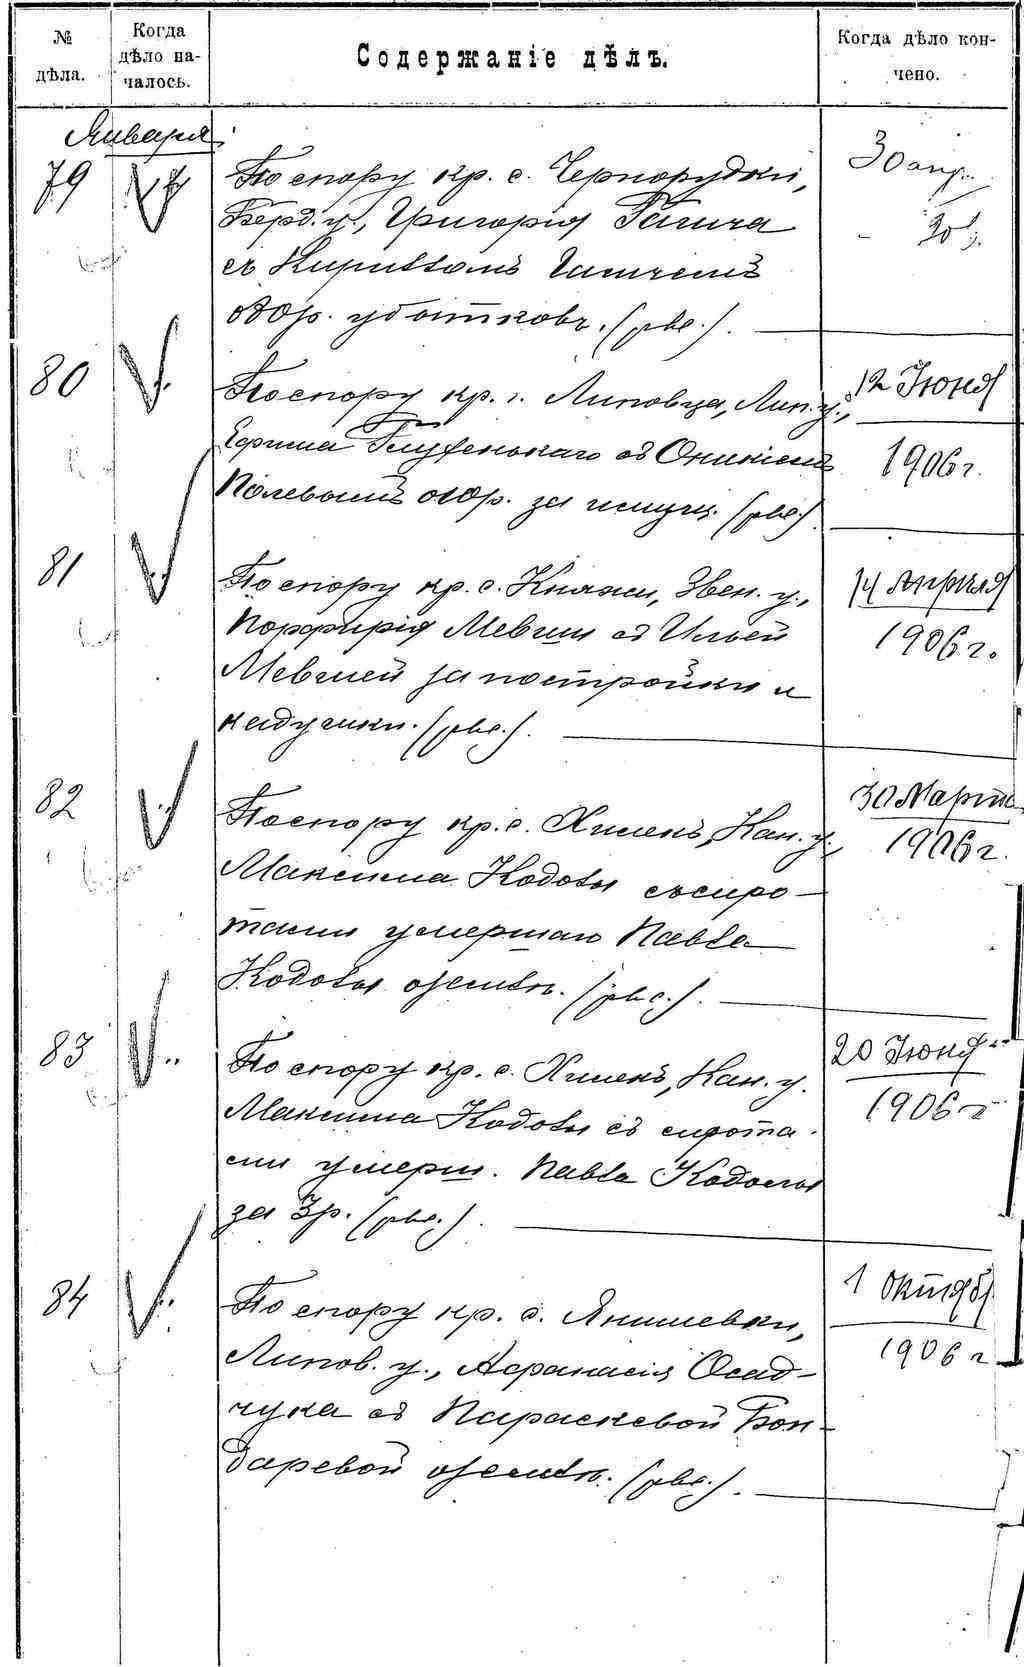 № дѣла.
Когда дѣло началось.
Содержаніе дѣлъ.
Когда дѣло кончено.
Января
79
По спору кр. с. Чернорудки,
Берд. у., Григорія Гагича
съ Кирилломъ Гагичемъ
убытковъ.
30 апр.
80
По спору кр. г. Липовца, Лип. у.,
Ефима съ Оникіемъ
Полевымъ за
12 Июня
1906 г.
81
По спору кр. с. Княжи, Звен. у.,
Порфирія Мевши съ Ильей
Мевшей за постройки и
кадушки.
14 Апреля
1906 г.
82
По спору кр. с. Хмлекъ, Кан. у.,
Максима Кодолы съ сиро-
тами умершаго Павла
Кодолы о землѣ.
30 Марта
1906 г.
83
По спору кр. с. Хмлекъ, Кан. у.
Максима Кодолы съ сирота-
ми умерш. Павла Кодолы
за
20 Июня
1906 г
84
По спору кр. с. Янишевки,
Липов. у., Афанасія Осад-
чука съ Параскевой Бон-
даревой о землѣ.
1 Октяб
1906 г